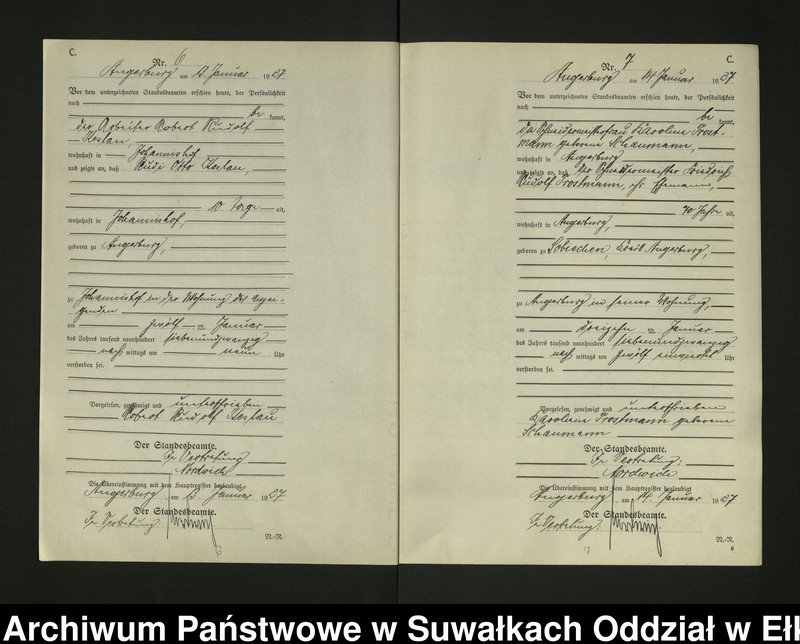 C.
Nr. 6
Angerburg am 13. Januar 1927
Vor dem unterzeichneten Standesbeamten erschien heute, der Persönlichkeit
nach
be kannt,
der Arbeiter Robert Rudolf
wohnhaft in Johannishof
und zeigte an, daß Rudi Otto
10 Tage alt,
wohnhaft in Johannishof,
geboren zu Angerburg,
zu Johannishof in der Wohnung des Anzei-
genden
am zwölf ten Januar
des Jahres tausend neunhundert siebenundzwanzig
nach mittags um neun Uhr
verstorben sei.
Vorgelesen, genehmigt und unterschrieben
Robert Rudolf
Der Standesbeamte.
In Vertretung
Nordwich
Die Übereinstimmung mit dem Hauptregister beglaubigt
Angerburg, am 13. Januar 1927
Der Standesbeamte.
In Vertretung
N-N.
C.
Nr. 7
Angerburg am 14. Januar 1927
Vor dem unterzeichneten Standesbeamten erschien heute, der Persönlichkeit
nach
be kannt,
die Schneidermeisterfrau Karoline Trost-
mann geborene Schaumann,
wohnhaft in Angerburg
und zeigte an, daß der Schneidermeister Friedrich
Rudolf Trostmann, ihr Ehemann,
70 Jahre alt,
wohnhaft in Angerburg,
geboren zu Sobiechen, Kreis Angerburg,
zu Angerburg in seiner Wohnung,
am dreizehn ten Januar
des Jahres tausend neunhundert siebenundzwanzig
nach mittags um zwölf einviertel Uhr
verstorben sei.
Vorgelesen, genehmigt und unterschrieben
Karoline Trostmann geborene
Schaumann
Der Standesbeamte.
In Vertretung:
Nordwich
Die Übereinstimmung mit dem Hauptregister beglaubigt
Angerburg, am 14. Januar 1927
Der Standesbeamte.
In Vertretung:
N-N.
7
Archiwum Państwowe w Suwałkach Oddział w Eł